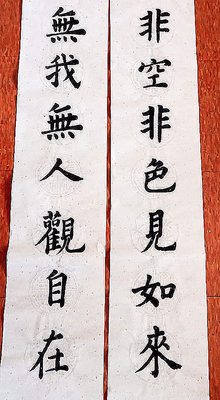 非空非色見如來
無我無人觀自在